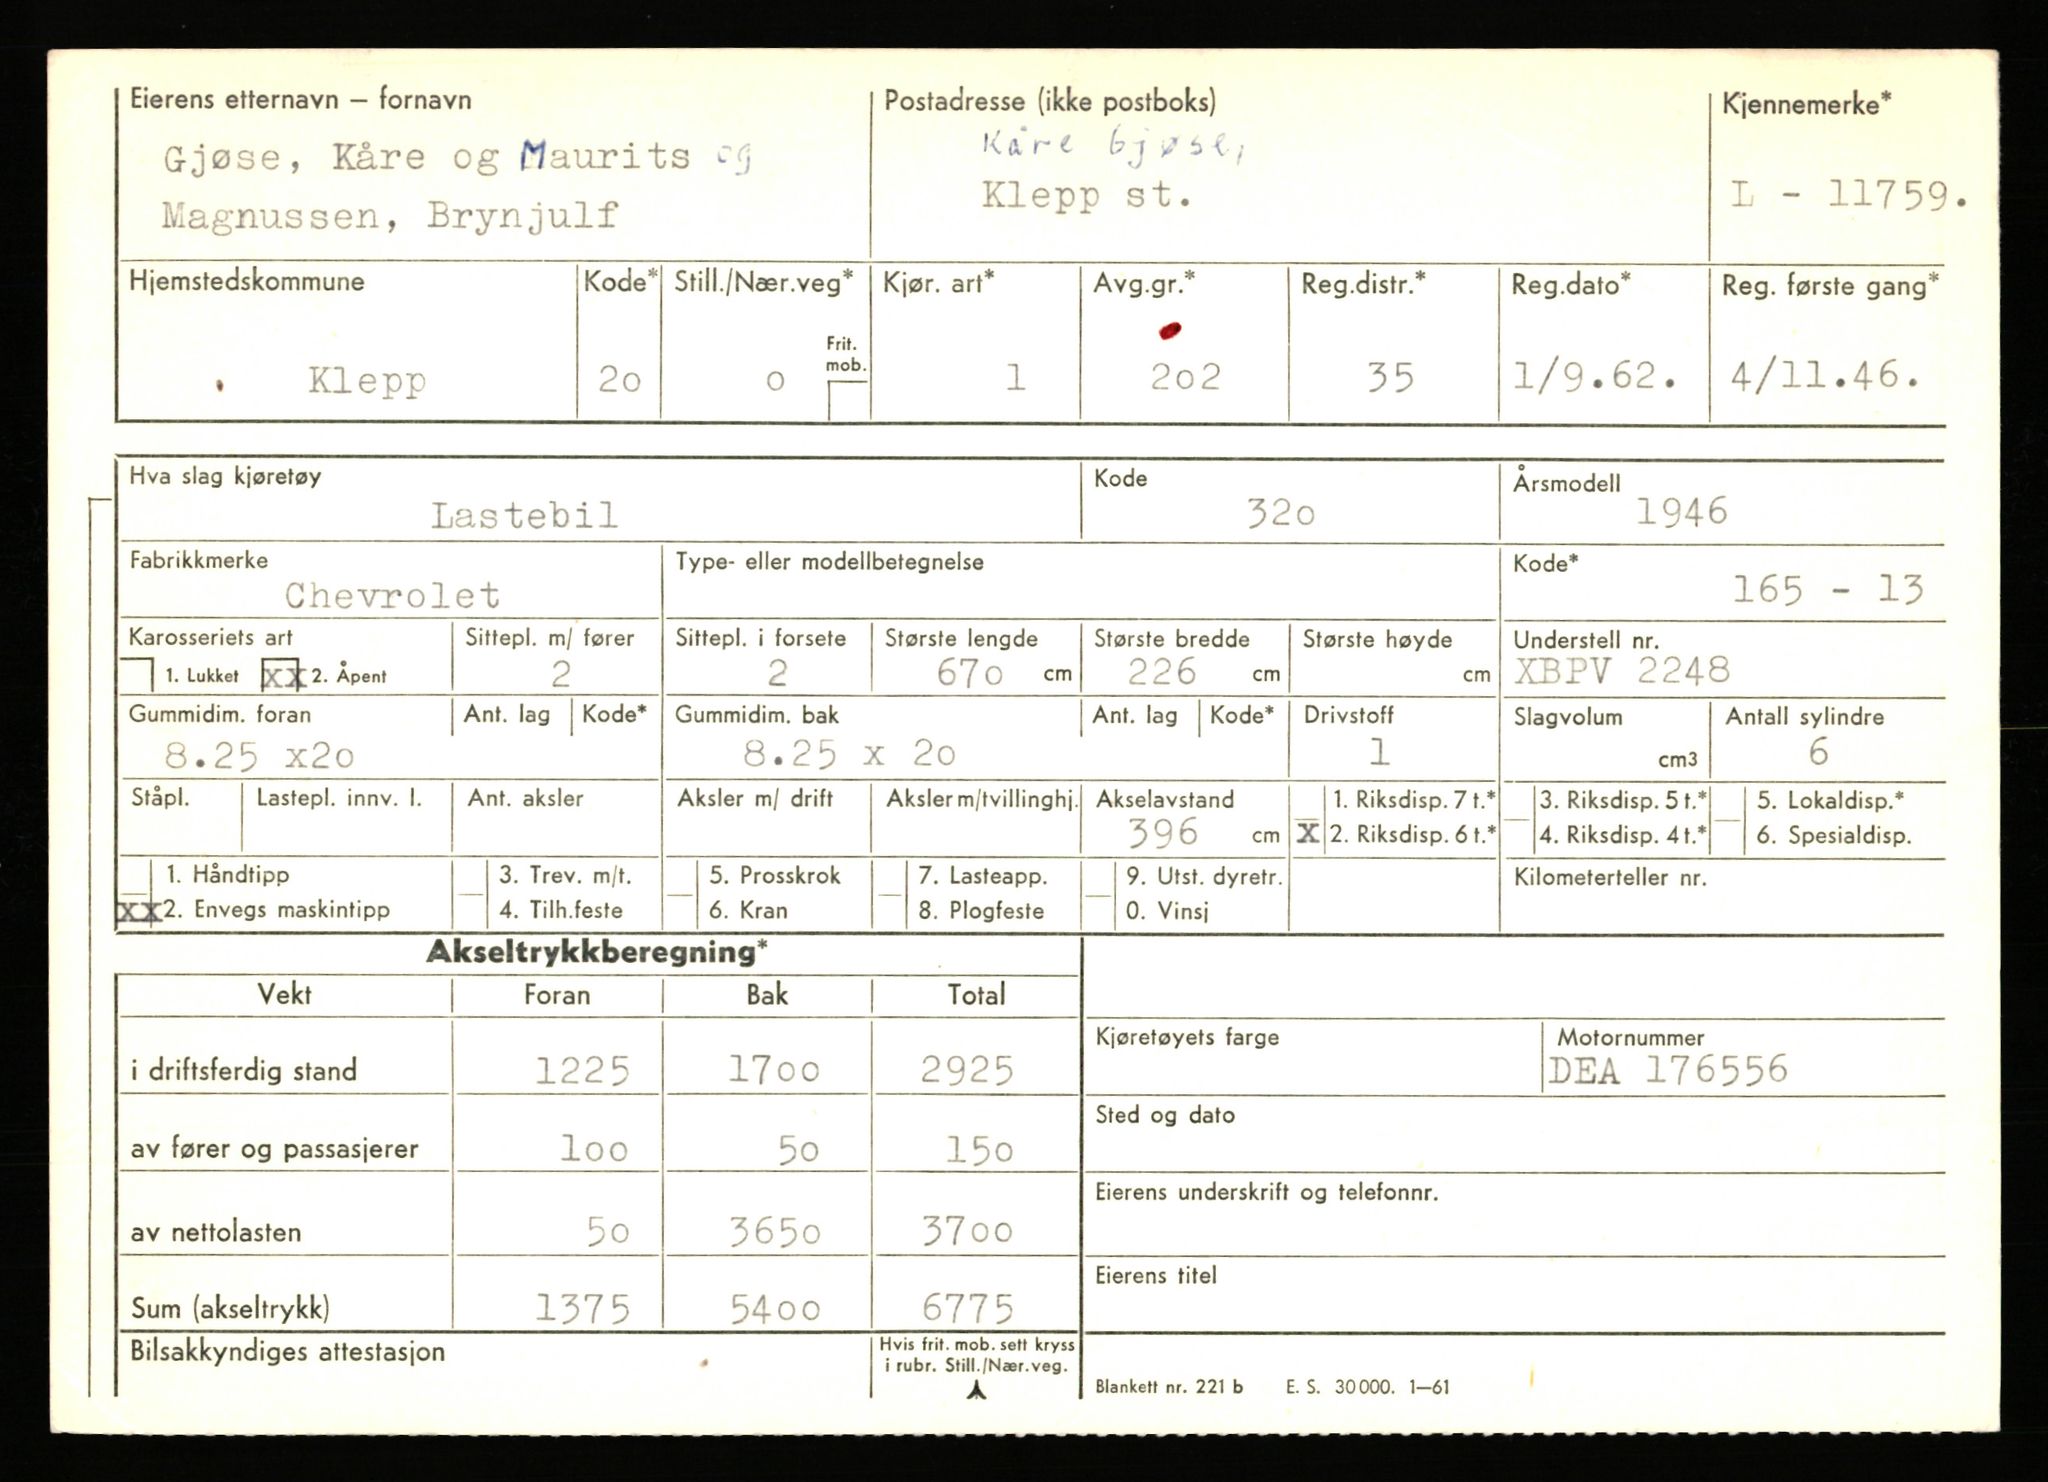 Eierens etternavn – fornavn
Postadresse (ikke postboks)
Kjennemerke*
Gjøse, Kåre og Maurits og
Magnussen, Brynjulf
Kåre Gjøse,
Klepp st.
L - 11759.
Hjemstedskommune
Kode*
Still./Nær.veg*
Kjør. art*
Avg.gr.*
Reg.distr.*
Reg.dato*
Reg. første gang*
Frit.
mob.
Klepp
20
0
1
202
35
1/9.62.
4/11.46.
Hva slag kjøretøy
Lastebil
Kode
320
Årsmodell
1946
Fabrikkmerke
Chevrolet
Type- eller modellbetegnelse
Kode*
165 - 13
Karosseriets art
1. Lukket XX 2. Åpent
Sittepl. m/ fører
2
Sittepl. i forsete
2
Største lengde
670 cm
Største bredde
226 cm
Største høyde
cm
Understell nr.
XBPV 2248
Gummidim. foran
8.25 x20
Ant. lag
Kode*
Gummidim. bak
8.25 x 20
Ant. lag
Kode*
Drivstoff
1
Slagvolum
cm3
Antall sylindre
6
Ståpl.
Lastepl. innv. l.
Ant. aksler
Aksler m/ drift
Aksler m/tvillinghj.
Akselavstand
396 cm
1. Riksdisp. 7 t.*
X 2. Riksdisp. 6 t.*
3. Riksdisp. 5 t.*
4. Riksdisp. 4 t.*
5. Lokaldisp.*
6. Spesialdisp.
1. Håndtipp
XX 2. Envegs maskintipp
3. Trev. m/t.
4. Tilh.feste
5. Prosskrok
6. Kran
7. Lasteapp.
8. Plogfeste
9. Utst. dyretr.
0. Vinsj
Kilometerteller nr.
Akseltrykkberegning*
Vekt Foran Bak Total
i driftsferdig stand 1225 1700 2925
av fører og passasjerer 100 50 150
av nettolasten 50 3650 3700
Sum (akseltrykk) 1375 5400 6775
Bilsakkyndiges attestasjon
Hvis frit. mob. sett kryss
i rubr. Still./Nær.veg.
Kjøretøyets farge
Motornummer
DEA 176556
Sted og dato
Eierens underskrift og telefonnr.
Eierens titel
Blankett nr. 221 b E. S. 30 000. 1–61